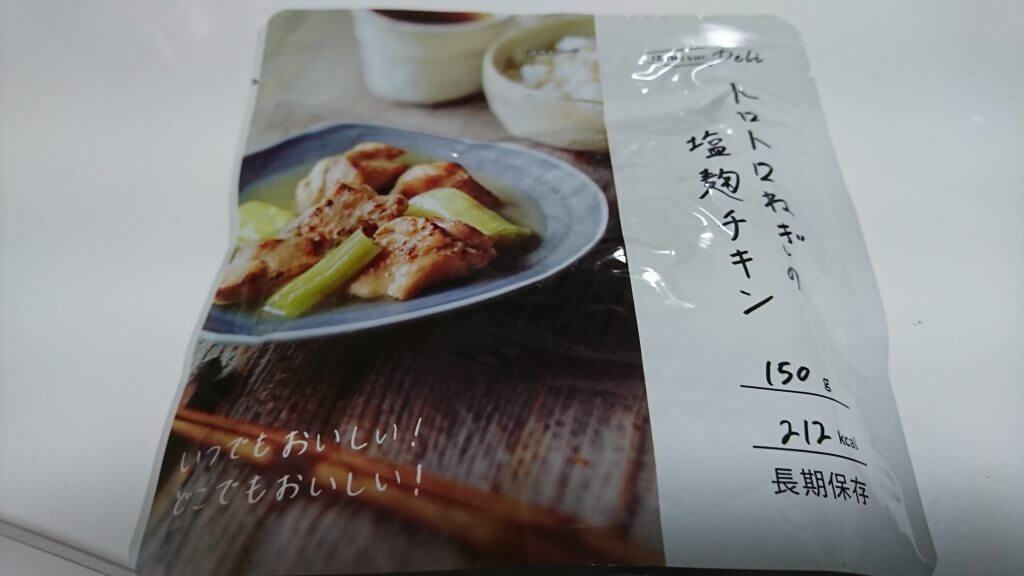 Deli
トロトロねぎの
塩麹チキン
150g
212kcal
長期保存
いつでもおいしい!
どこでもおいしい!